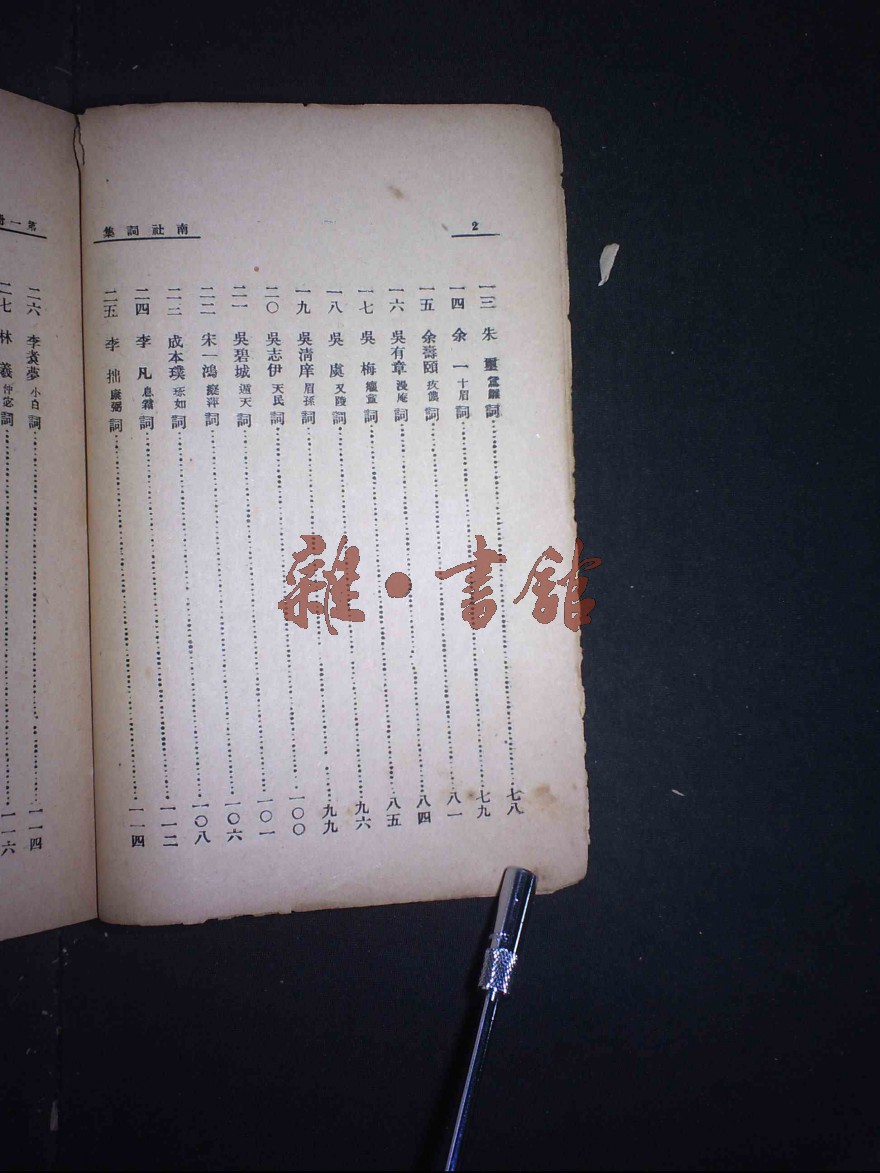 2
南社詞集
一三 朱璽 鴛雛 詞 七八
一四 余一 十眉 詞 七九
一五 余壽頤 疚儂 詞 八一
一六 吳有章 漫庵 詞 八四
一七 吳梅 癯盦 詞 八五
一八 吳虞 又陵 詞 九六
一九 吳清庠 眉孫 詞 九九
二〇 吳志伊 天民 詞 一〇〇
二一 吳碧城 遁天 詞 一〇一
二二 宋一鴻 癡萍 詞 一〇六
二三 成本璞 琢如 詞 一〇八
二四 李凡 息霜 詞 一一二
二五 李拙 康弼 詞 一一四
第一冊
二六 李 夢 小白 詞 一一四
二七 林 仲 詞 一一六
雜·書館